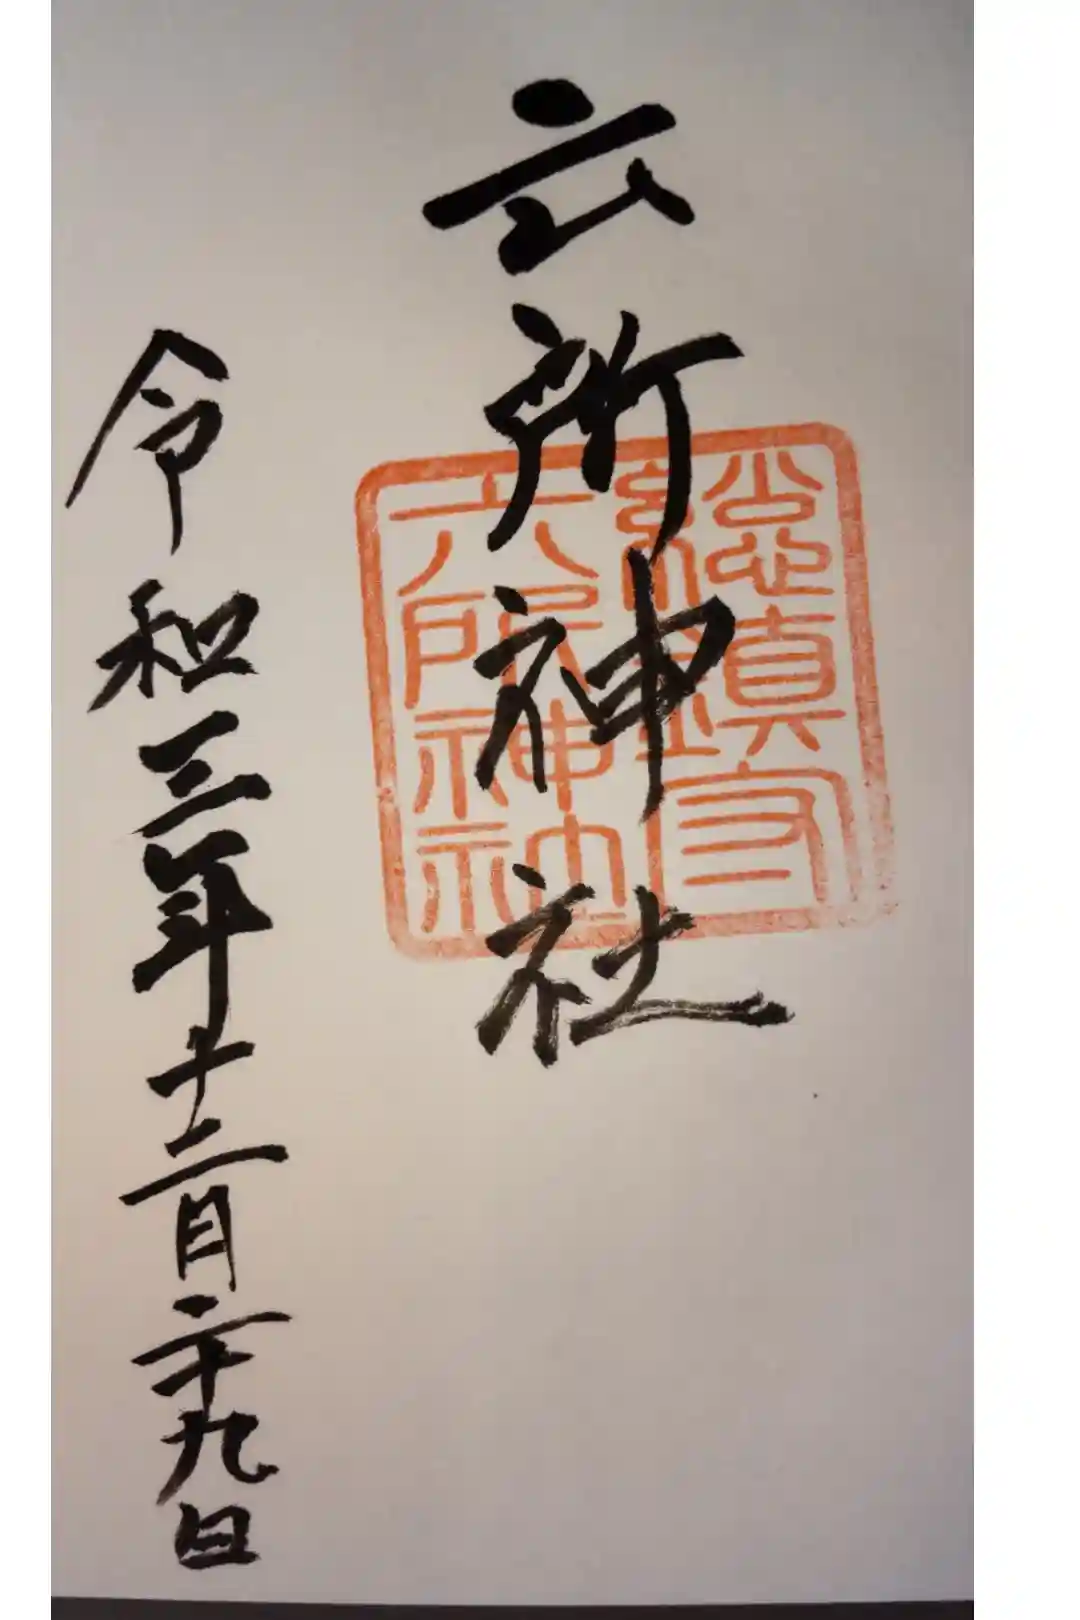 六所神社
総鎮守
六所神社
令和三年十二月二十九日